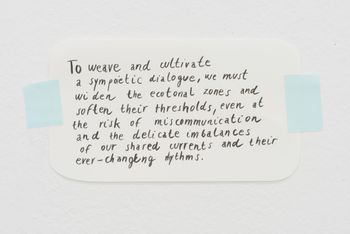 To weave and cultivate
a sympoetic dialogue, we must
widen the ecotonal zones and
soften their thresholds, even at
the risk of miscommunication
and the delicate imbalances
of our shared currents and their
ever-changing rythms.